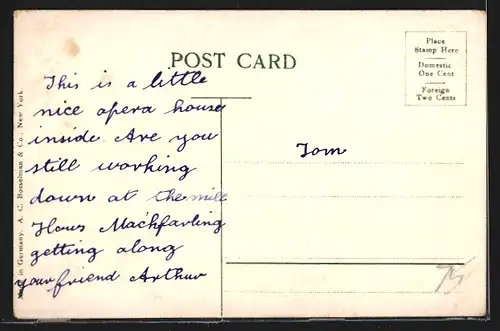 POST CARD
Place
Stamp Here
Domestic
One Cent
Foreign
Two Cents
This is a little
nice opera house
inside. Are you
still working
down at the mill
Hows Machfarling
getting along
your friend Arthur
Tom
in Germany. A. C. Bosselman & Co., New York.